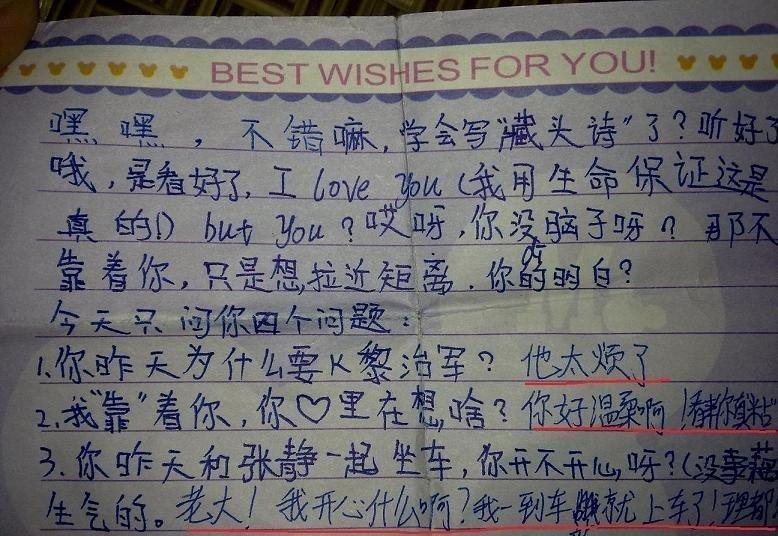 BEST WISHES FOR YOU!
嘿嘿，不错嘛，学会写“藏头诗”了？听好了
哦，是看好了，I love you（我用生命保证这是
真的！）but you？哎呀，你没脑子呀？那不
靠着你，只是想拉近距离．你的明白？
今天只问你四个问题：
1.你昨天为什么要K黎治军？ 他太烦了
2.我“靠”着你，你♡里在想啥？ 你好温柔啊！
3.你昨天和张静一起坐车，你开不开心呀？（没
生气的。老大！我开心什么啊？我一到车 就上车了！理都